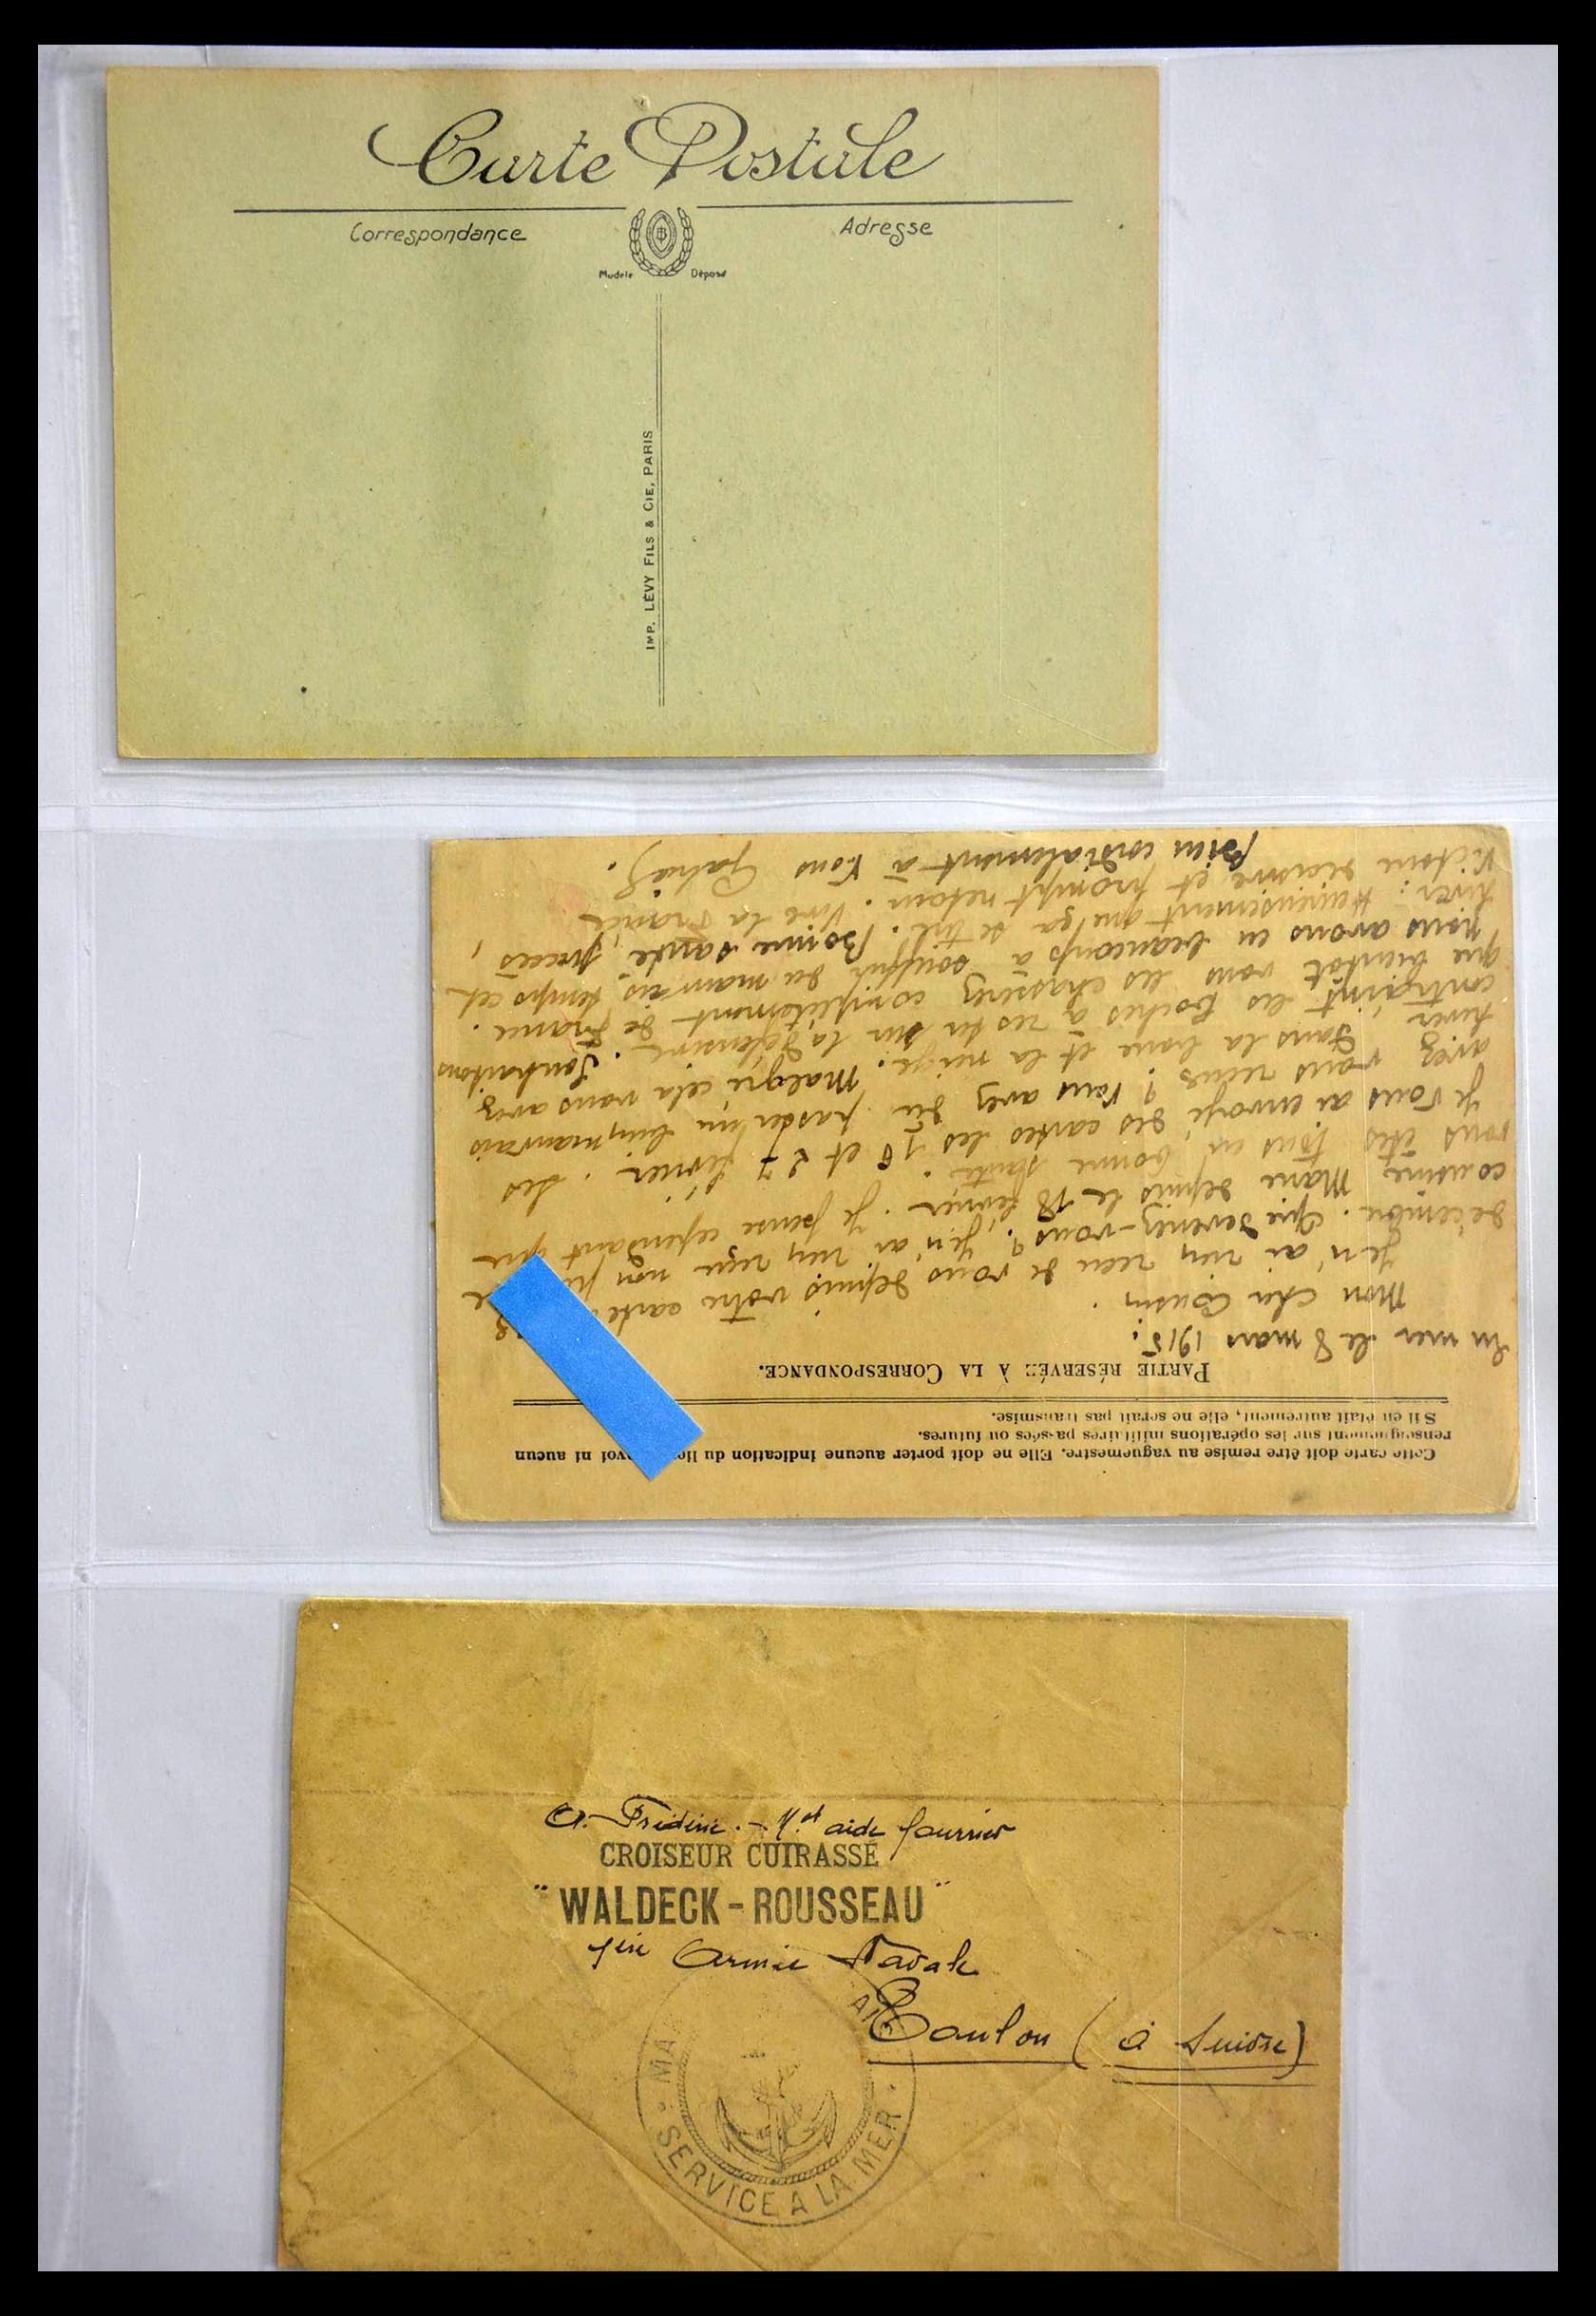 Carte Postale
Correspondance
Adresse
Modèle Déposé
IMP. LÉVY FILS & CIE, PARIS
Cette carte doit être remise au vaguemestre. Elle ne doit porter aucune indication du ni aucun
renseignement sur les opérations militaires passées ou futures.
S'il en était autrement, elle ne serait pas transmise.
PARTIE RÉSERVÉE À LA CORRESPONDANCE.
En mer le 8 mars 1915.
Mon cher Cousin
Je n'ai rien reçu de vous depuis votre carte
décembre. Que devenez-vous? Je n'ai rien reçu non
cousine Marie depuis le 18 février. Je pense cependant que
vous êtes tous en bonne santé.
Je vous ai envoyé des cartes les 16 et 27 février. Les
avez vous reçues? Vous avez dû passer un bien mauvais
hiver dans la boue et la neige. Malgré cela vous avez
contraint les boches à rester sur la défensive. Souhaitons
que bientôt vous les chasserez complètement de France.
Nous avons eu beaucoup à souffrir du mauvais temps cet
hiver. Heureusement que ça se tire. Bonne santé, succès,
victoire décisive et prompt retour. Vive la France
bien cordialement à vous
A. Fridéric. - Mot aide fourrier
CROISEUR CUIRASSÉ
"WALDECK-ROUSSEAU"
1ère Armée Navale
Toulon (à suivre)
SERVICE A LA MER